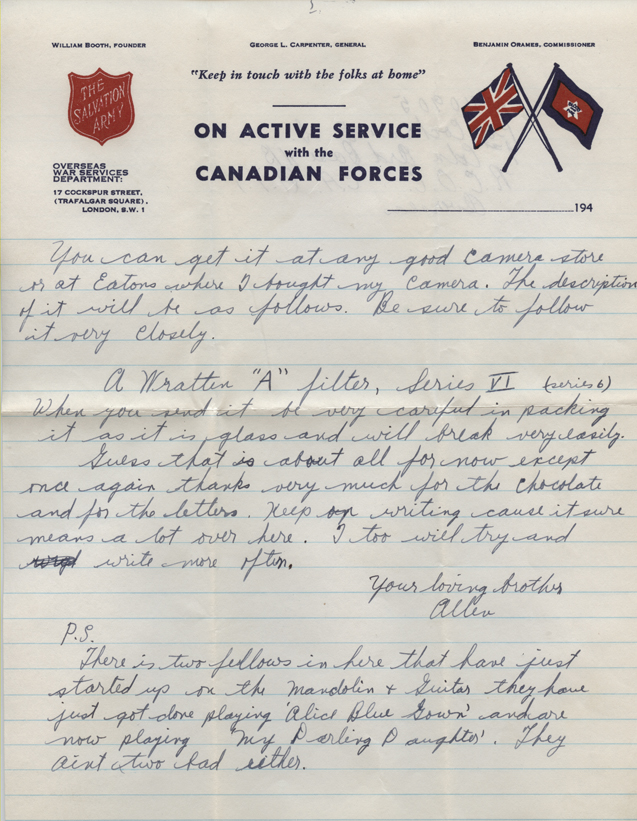 WILLIAM BOOTH, FOUNDER
GEORGE L. CARPENTER, GENERAL
BENJAMIN ORAMES, COMMISSIONER
THE
SALVATION
ARMY
"Keep in touch with the folks at home"
ON ACTIVE SERVICE
with the
CANADIAN FORCES
OVERSEAS
WAR SERVICES
DEPARTMENT:
17 COCKSPUR STREET,
(TRAFALGAR SQUARE),
LONDON, S.W. 1
194
You can get it at any good camera store
or at Eatons where I bought my Camera. The description
of it will be as follows. Be sure to follow
it very closely.
A Wratten "A" filter, Series VI (series 6)
When you send it be very careful in packing
it as it is glass and will break very easily.
Guess that is about all for now except
once again thanks very much for the chocolate
and for the letters. Keep on writing cause it sure
means a lot over here. I too will try and
write more often.
Your loving brother
Allen
P.S.
There is two fellows in here that have just
started up on the Mandolin + Guitar they have
just got done playing 'Alice Blue Gown' and are
now playing 'My Darling Daughter'. They
aint two bad either.